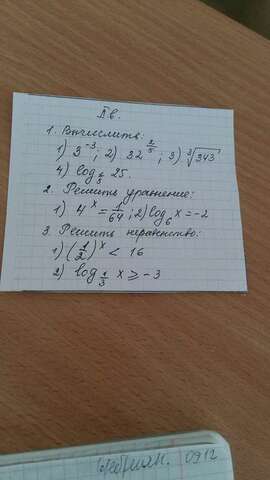 II в.
1. Вычислить:
1) 3⁻³; 2) 32^(2/5); 3) ∛343;
4) log_(1/5) 25.
2. Решить уравнение:
1) 4ˣ = 1/64; 2) log₆ x = -2
3. Решить неравенство:
1) (1/2)ˣ < 16
2) log_(1/3) x ≥ -3
0912